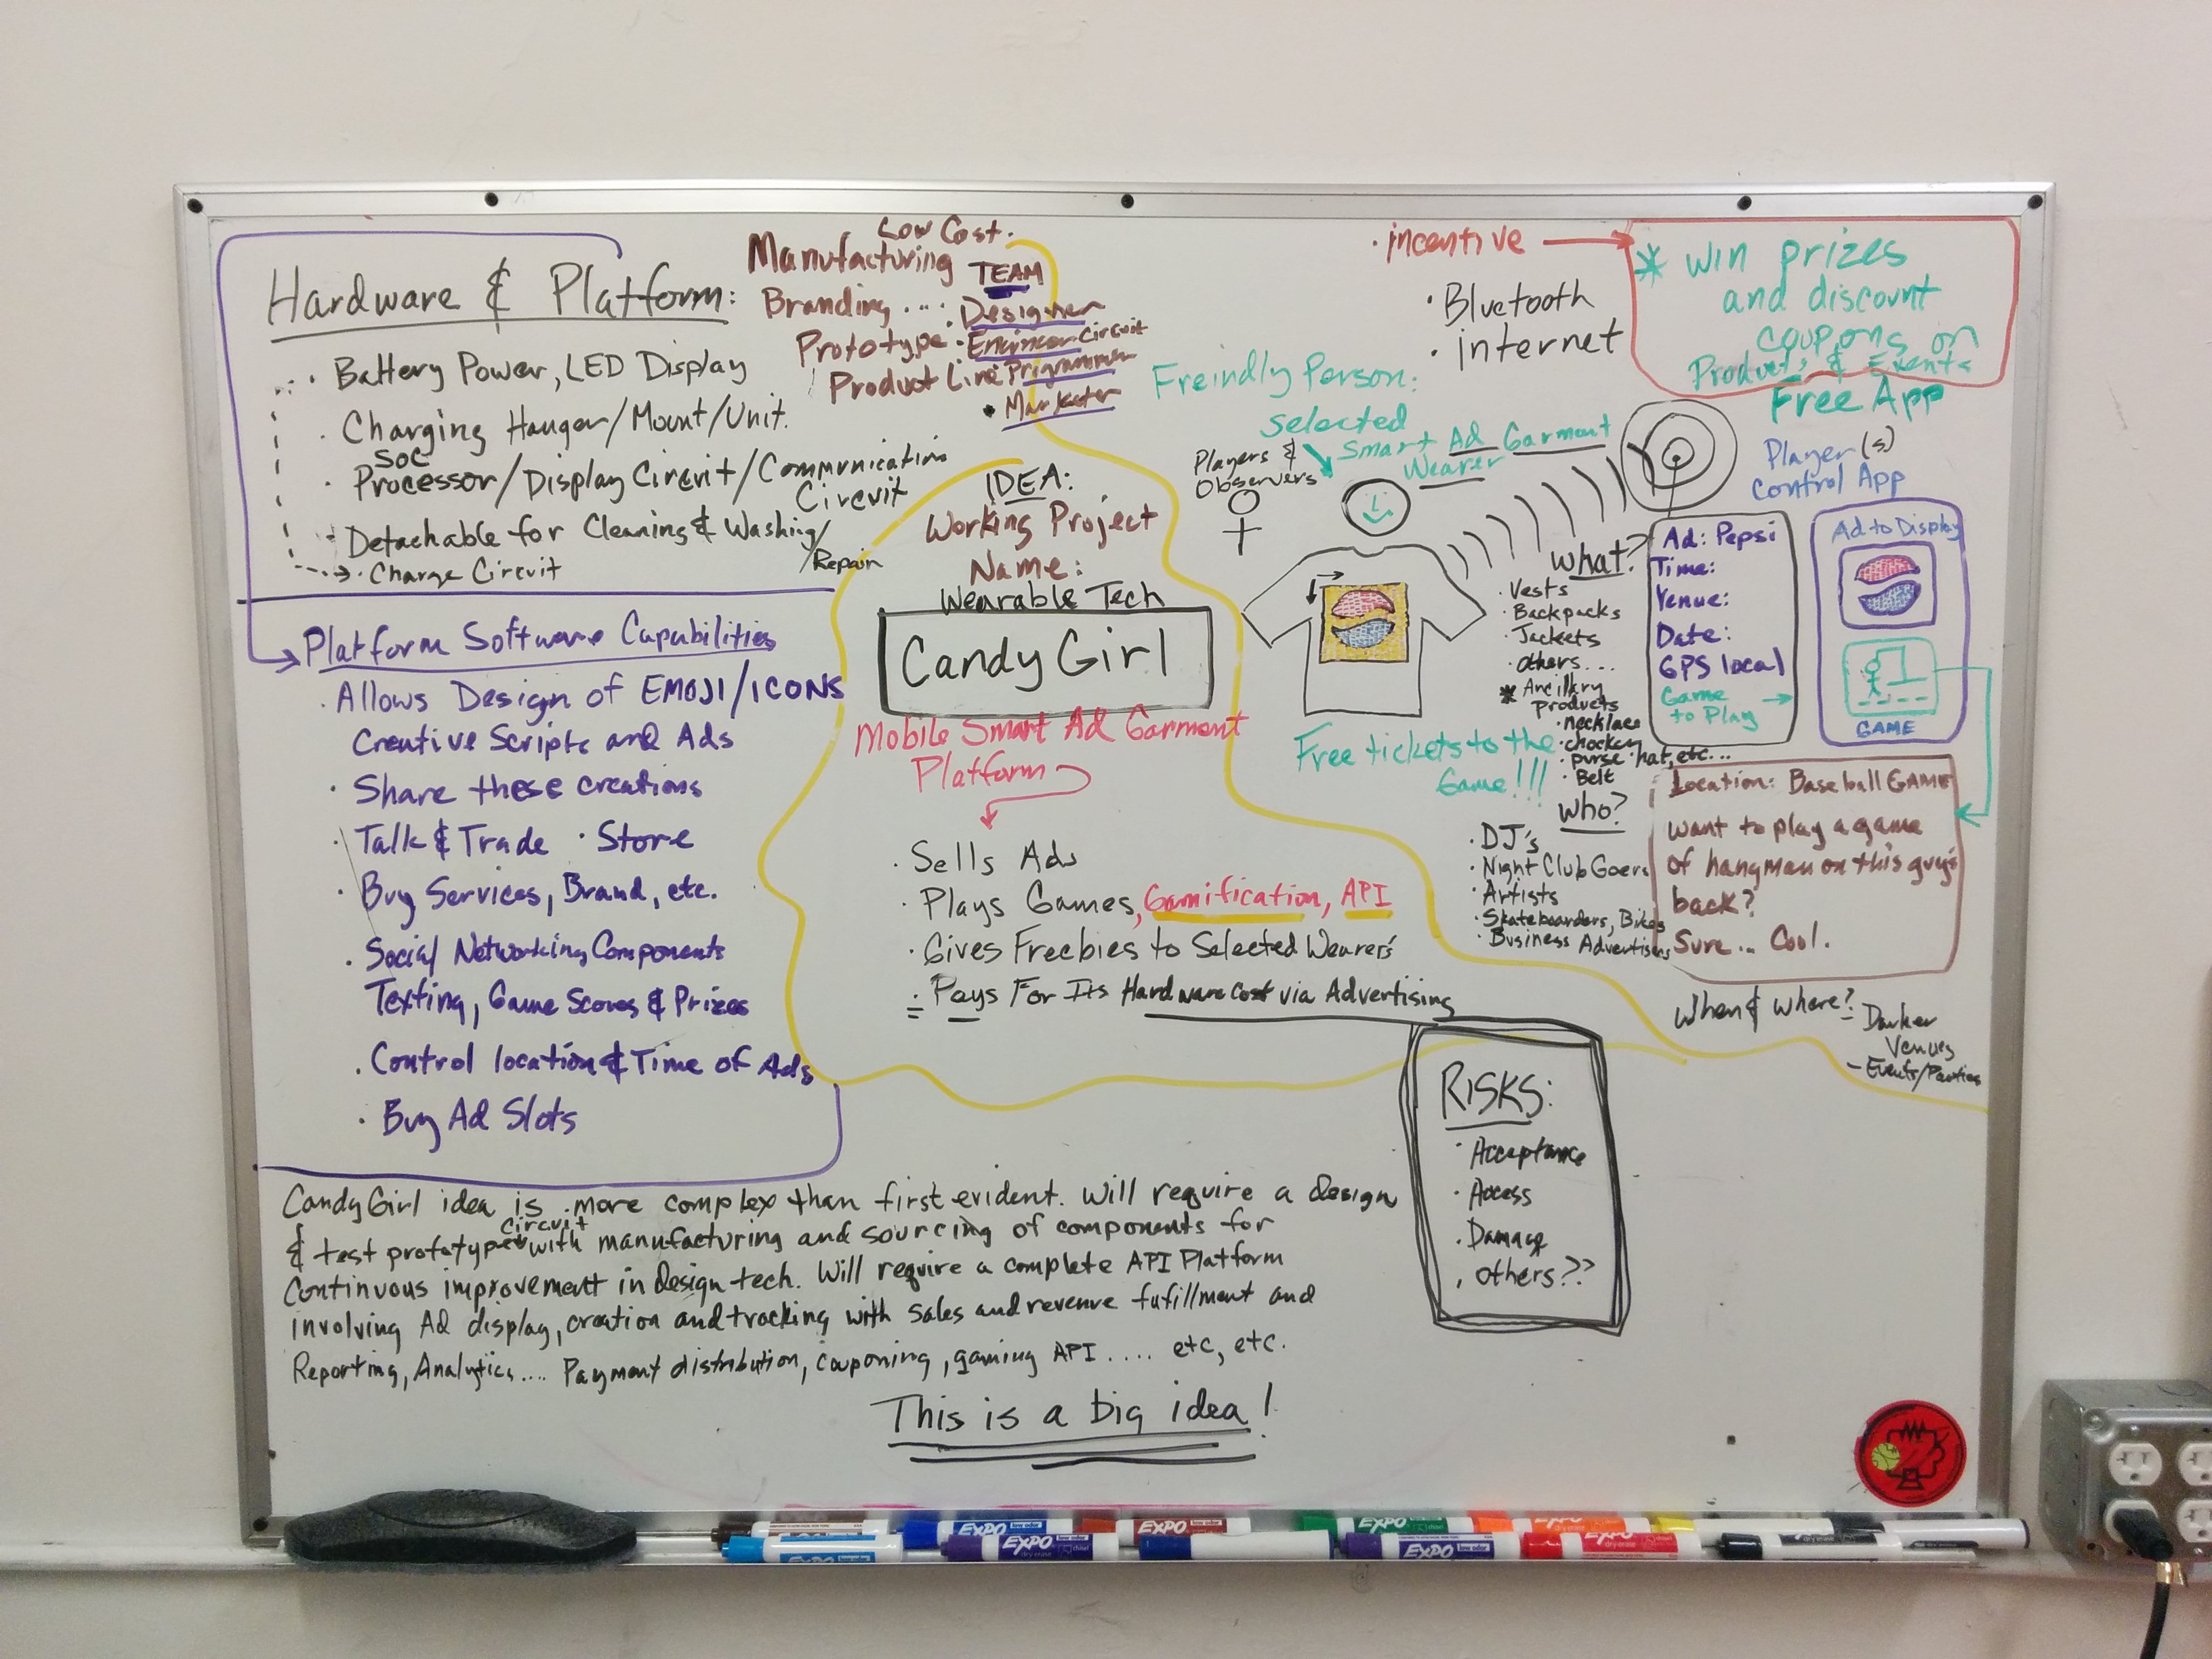 Hardware & Platform:
· Battery Power, LED Display
· Charging Hanger/Mount/Unit.
SOC
· Processor/Display Circuit/Communication
Circuit
· Detachable for Cleaning & Washing/
/Repair
· Charge Circuit
Low Cost.
Manufacturing
Branding ....
Prototype
Product Line
TEAM
· Designer
· Engineer Circuit
Programmer
· Marketer
Platform Software Capabilities
· Allows Design of EMOJI/ICONS
Creative Scripts and Ads
· Share these creations
· Talk & Trade · Store
· Buy Services, Brand, etc.
· Social Networking Components
Texting, Game Scores & Prizes
· Control location & Time of Ads
· Buy Ad Slots
IDEA:
Working Project
Name:
Wearable Tech
Candy Girl
Mobile Smart Ad Garment
Platform
· Sells Ads
· Plays Games, Gamification, API
· Gives Freebies to Selected Wearer's
Pays For Its Hardware Cost via Advertising
· incentive
· Bluetooth
· internet
* Win prizes
and discount
coupons on
Products & Events
Free App
Freindly Person:
Selected
Smart Ad Garment
Wearer
Players &
Observers
Player(s)
Control App
Ad: Pepsi
Time:
Venue:
Date:
GPS local
Game
to Play
Ad to Display
GAME
What?
· Vests
· Backpacks
· Jackets
· others...
* Ancillary
products
· necklace
· purse · hat, etc...
· Belt
Free tickets to the
Game!!!
Who?
· DJ's
· Night Club Goers
· Artists
· Skateboarders, Bikes
· Business Advertisers
Location: Baseball GAME
want to play a game
of hangman on this guys
back?
Sure... Cool.
When & Where?
- Darker
Venues
- Events/Parties
RISKS:
· Acceptance
· Access
· Damage
· others??
Candy Girl idea is more complex than first evident. Will require a design
circuit
& test prototype with manufacturing and sourcing of components for
Continuous improvement in design tech. Will require a complete API Platform
involving Ad display, creation and tracking with sales and revenue fufillment and
Reporting, Analytics.... Payment distribution, couponing, gaming API.... etc, etc.
This is a big idea!
EXPO
EXPO
EXPO
EXPO
EXPO
EXPO
EXPO